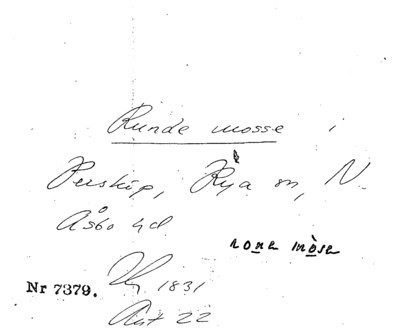 Runde mosse i
Perskip, Rya sn, N.
Åsbo hd
rone mòse
Nr 7379.
1831
Akt 22